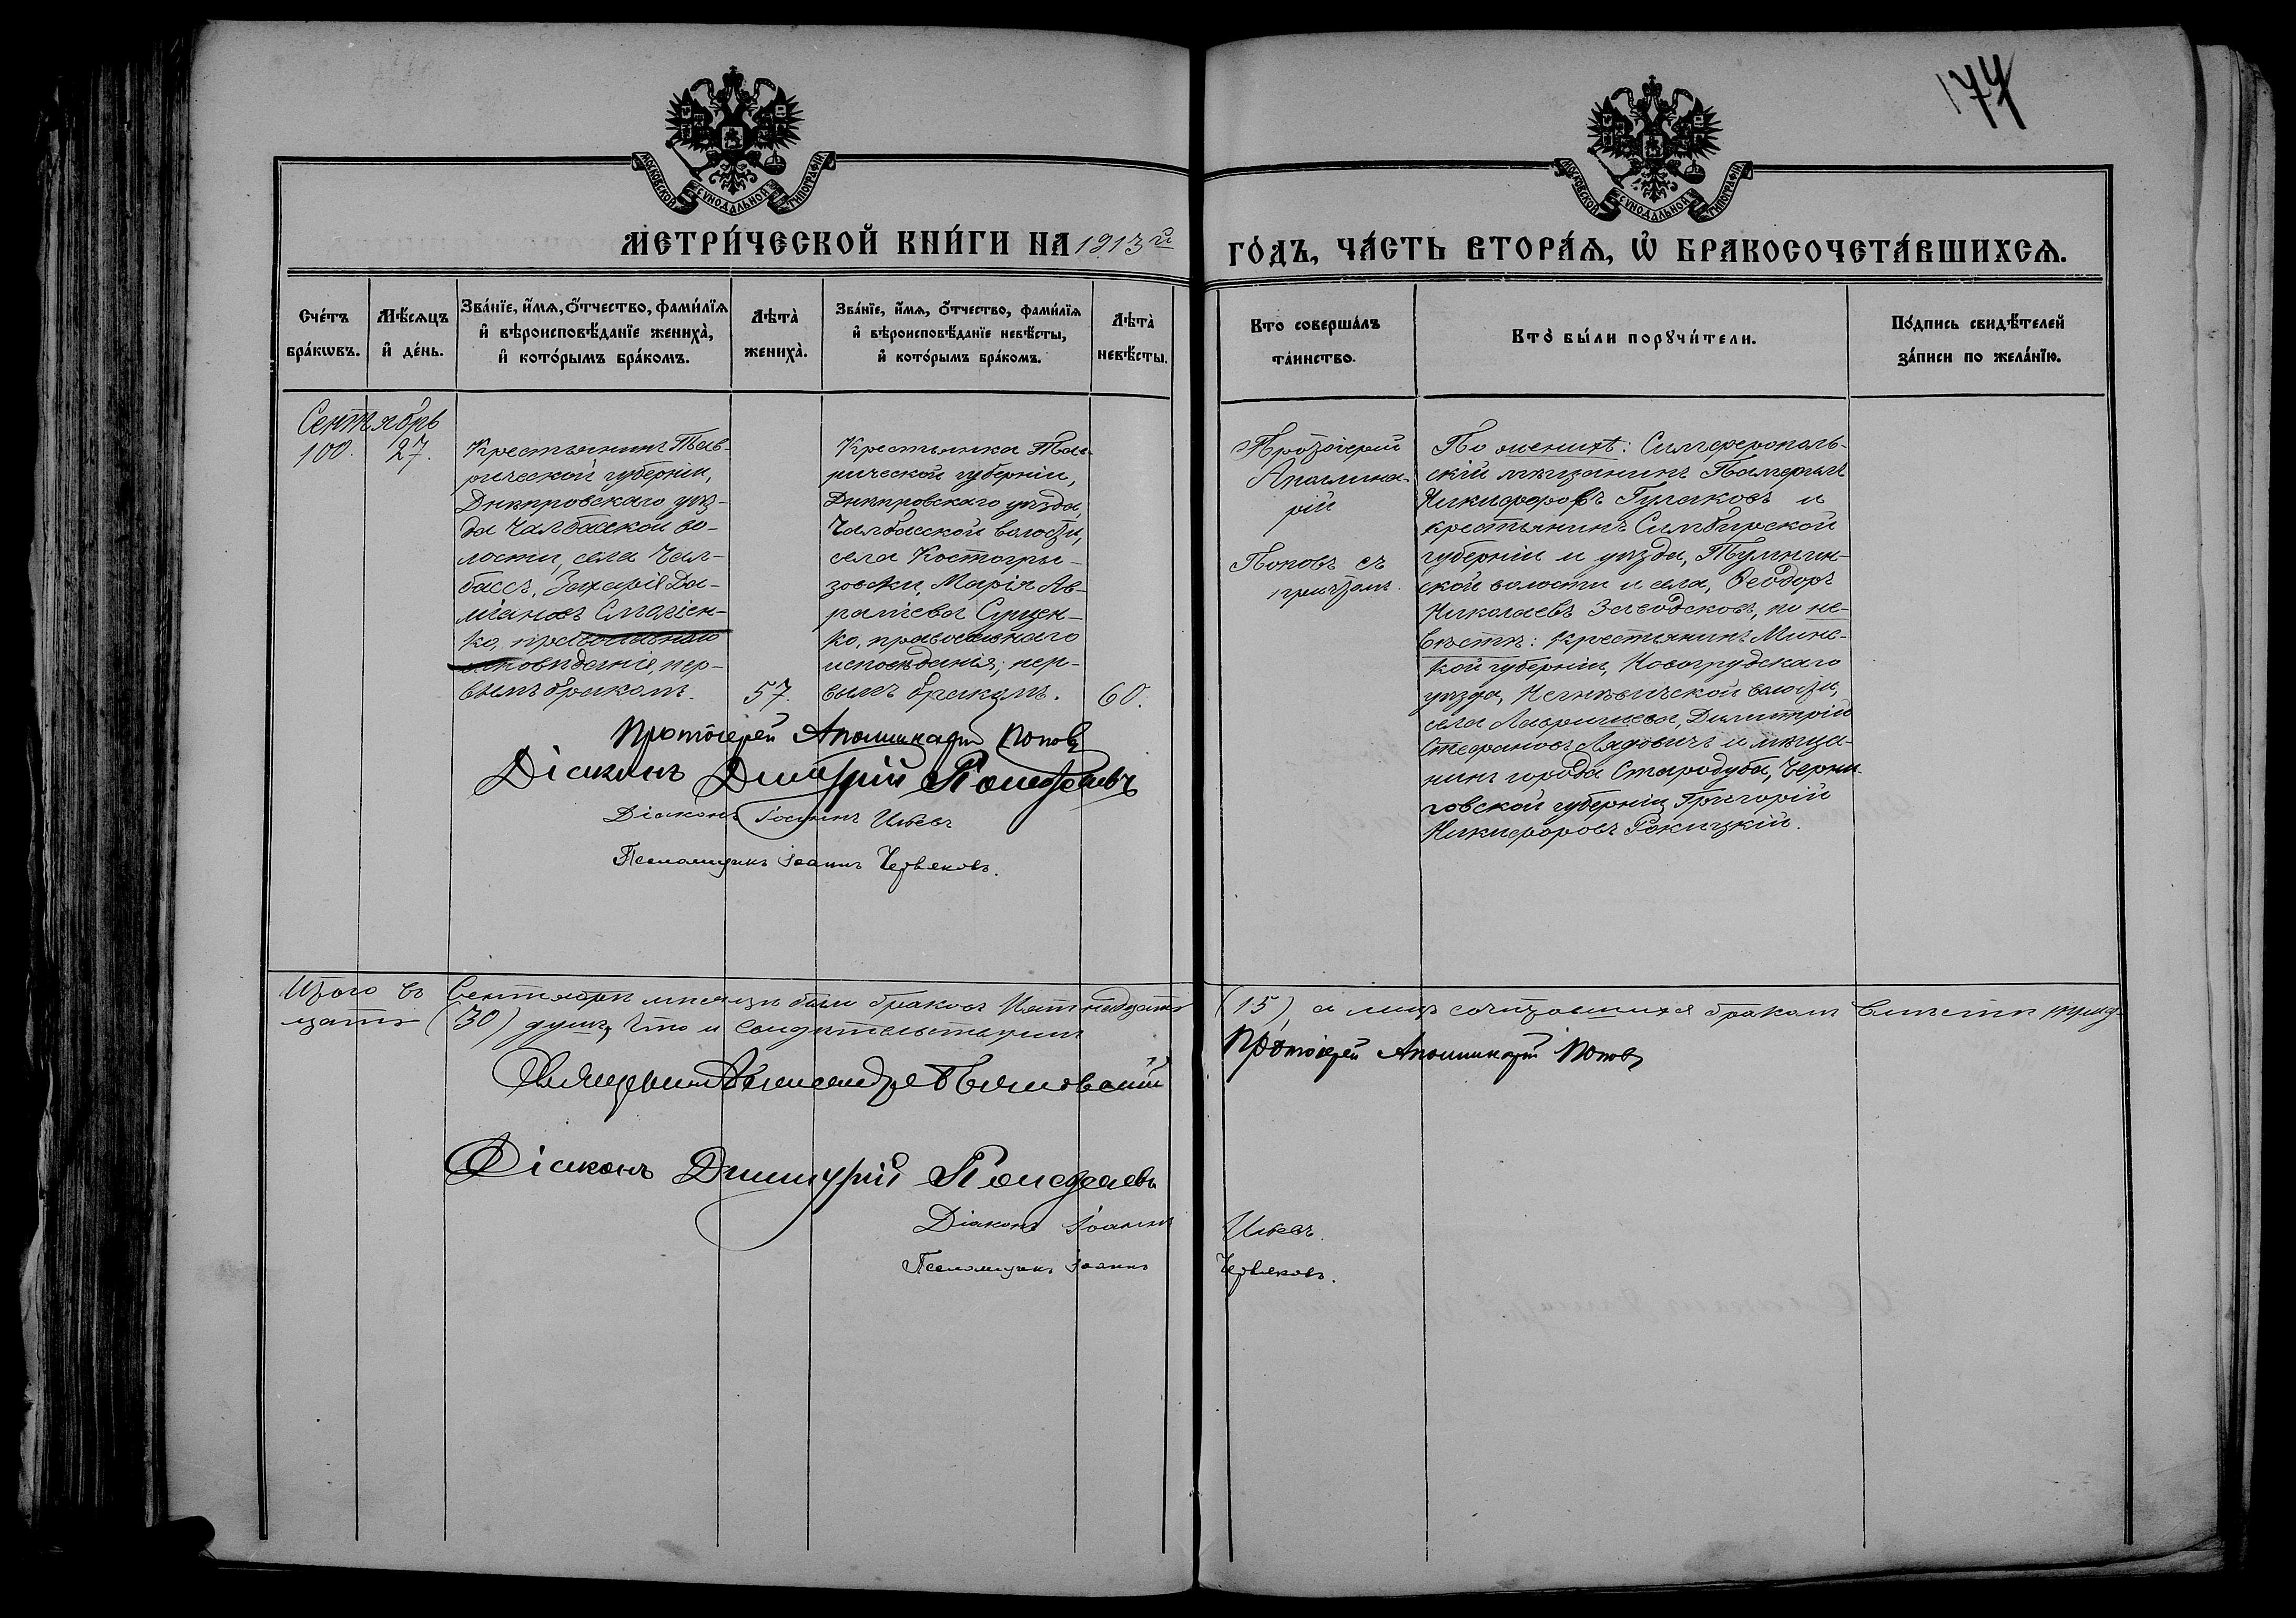 174
МОСКОВСКОЙ СѴНОДАЛЬНОЙ ТИПОГРАФІИ
МОСКОВСКОЙ СѴНОДАЛЬНОЙ ТИПОГРАФІИ
МЕТРИ́ЧЕСКОЙ КНИ́ГИ НА 1913й
ГО́ДЪ, ЧА́СТЬ ВТОРА́Ѧ, Ѡ БРАКОСОЧЕТА́ВШИХСѦ.
Сче́тъ бра́кѡвъ.
Мѣ́сѧцъ и҆ де́нь.
Зва́нїе, и҆́мѧ, ѻ҆́тчество, фами́лїѧ
и҆ вѣроисповѣ́данїе женихà,
и҆ кото́рымъ бра́комъ.
Лѣтà женихà.
Зва́нїе, и҆́мѧ, ѻ҆́тчество, фами́лїѧ
и҆ вѣроисповѣ́данїе невѣ́сты,
и҆ кото́рымъ бра́комъ.
Лѣтà невѣ́сты.
Кто совершáлъ
тáинство.
Ктò бы́ли порꙋчи́тели.
По́дпись свидѣ́телей
зáписи по желáнїю.
Сентябрь
100. 27.
Крестьянинъ Тав-
рической губерніи,
Днѣпровскаго уѣз-
да Чалбасской во-
лости, села Чал-
басъ, Захарія Да-
міановъ
ко, православнаго
исповѣданія, пер-
вымъ бракомъ. 57.
Крестьянка Тав-
рической губерніи,
Днѣпровскаго уѣзда,
Чалбасской волости,
села Костогры-
зовки, Марія Ав-
раміева Сущен-
ко, православнаго
исповѣданія, пер-
вымъ бракомъ. 60.
Протоіерей
Аполлина-
рій
Поповъ съ
причтомъ.
По женихѣ: Симферополь-
скій мѣщанинъ
Никифоровъ Гулаковъ и
крестьянинъ Симбирской
губерніи и уѣзда,
ской волости и села, Ѳеодоръ
Николаевъ Заводсковъ, по не-
вѣстѣ: крестьянинъ Минс-
кой губерніи, Новогрудскаго
уѣзда, волости,
села Димитрій
Стефановъ Лядовичъ и мѣща-
нинъ города Стародуба, Черни-
говской губерніи, Григорій
Никифоровъ Рокицкій.
Протоіерей Аполлинарій Поповъ
Діаконъ Димитрій
Діаконъ Іоаннъ Ильевъ
Псаломщикъ Іоаннъ Червяковъ.
Итого въ Сентябрѣ мѣсяцѣ было браковъ пятнадцать (15), а лицъ сочетавшихся бракомъ вмѣстѣ трид-
цать (30) душъ, что и свидѣтельствуемъ
Протоіерей Аполлинарій Поповъ
Священникъ Александръ
Діаконъ Димитрій
Діаконъ Іоаннъ Ильевъ.
Псаломщикъ Іоаннъ Червяковъ.